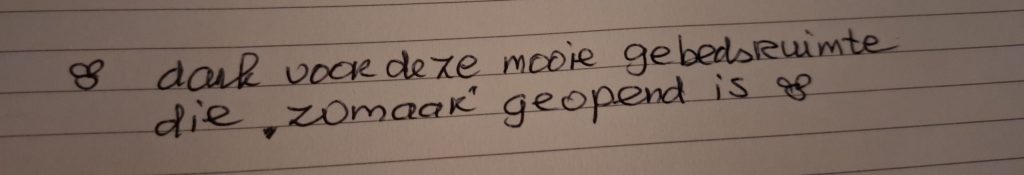 dank voor deze mooie gebedsruimte
die „zomaar" geopend is